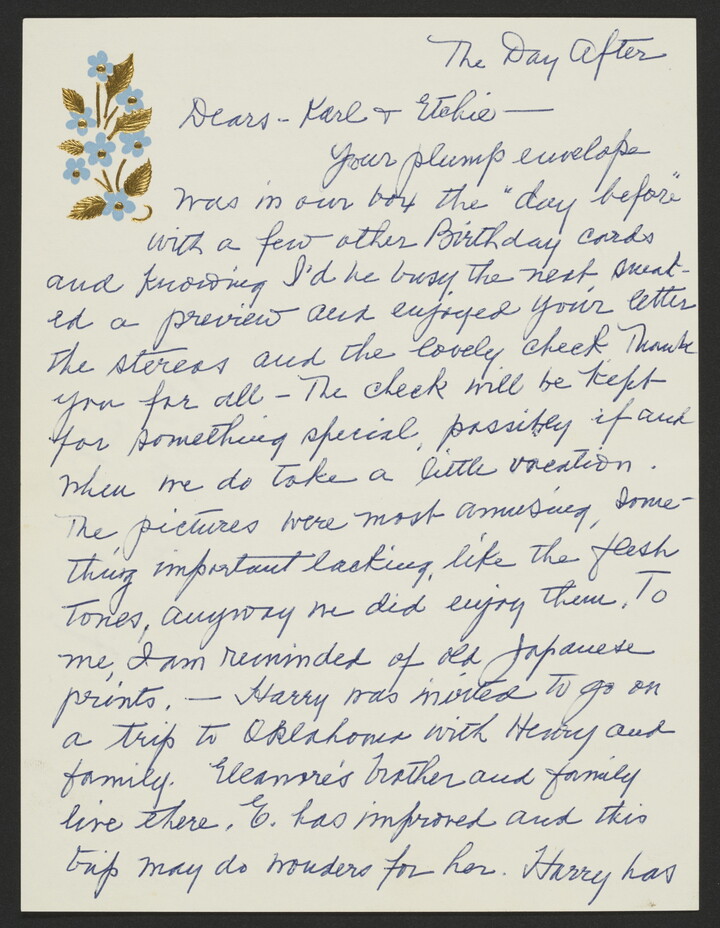 The Day After
Dears - Karl + Etchie —
Your plump envelope
was in our box the "day before"
with a few other Birthday cards
and knowing I'd be busy the next sneak-
ed a preview and enjoyed your letter
the stereos and the lovely check. Thank
you for all - The check will be kept
for something special, possibly if and
when we do take a little vacation.
The pictures were most amusing, some-
thing important lacking, like the flesh
tones, anyway we did enjoy them. To
me, I am reminded of old Japanese
prints. — Harry was invited to go on
a trip to Oklahoma with Henry and
family. Eleanore's brother and family
live there. E. has improved and this
trip may do wonders for her. Harry has